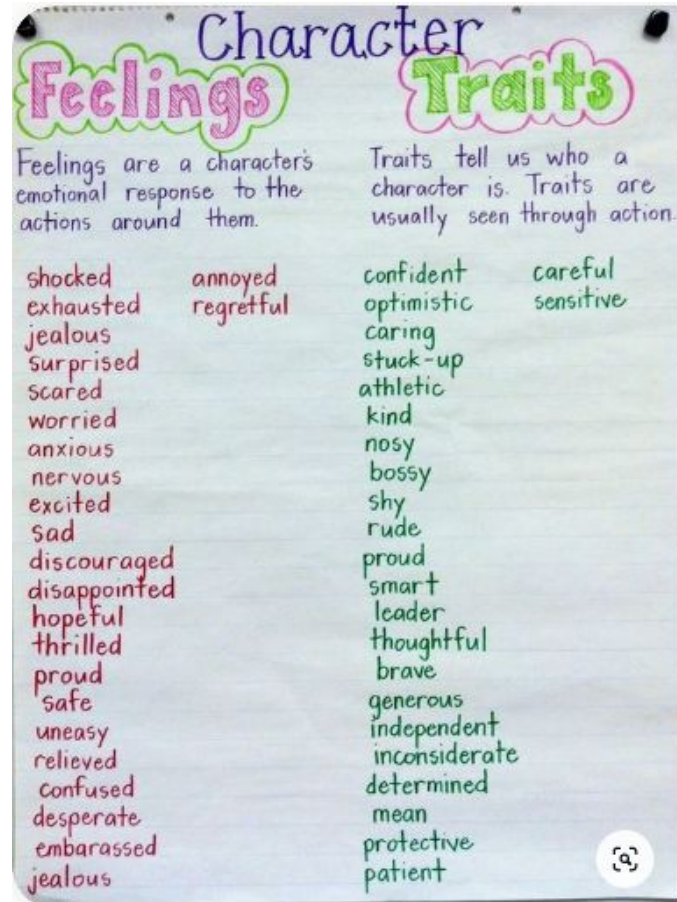 Character
Feelings
Feelings are a character's
emotional response to the
actions around them.
shocked
exhausted
jealous
surprised
scared
worried
anxious
nervous
excited
sad
discouraged
disappointed
hopeful
thrilled
proud
safe
uneasy
relieved
confused
desperate
embarassed
jealous
annoyed
regretful
Traits
Traits tell us who a
character is. Traits are
usually seen through action.
confident
optimistic
caring
stuck-up
athletic
kind
nosy
bossy
shy
rude
proud
smart
leader
thoughtful
brave
generous
independent
inconsiderate
determined
mean
protective
patient
careful
sensitive